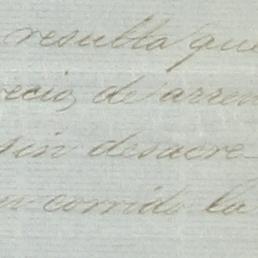 resulta que
recio, de arren
sin desacre
en corrido la